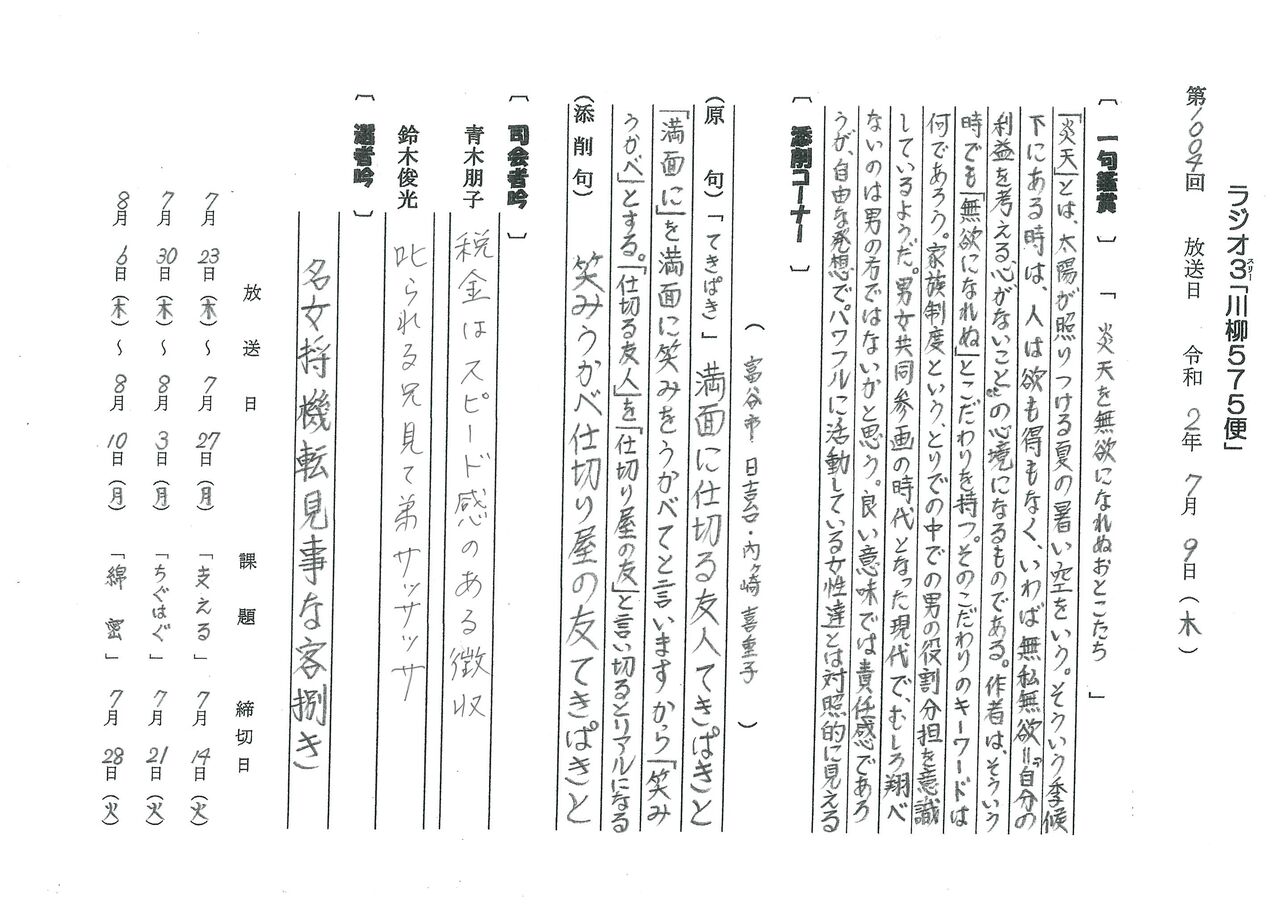 ラジオ3「川柳575便」
スリー
第1004回 放送日 令和2年7月9日(木)
〔一句鑑賞〕「炎天を無欲になれぬおとこたち」
「炎天」とは、太陽が照りつける夏の暑い空をいう。そういう季候
下にある時は、人は欲も得もなく、いわば無私無欲=“自分の
利益を考える、心がないこと”の心境になるものである。作者は、そういう
時でも「無欲になれぬ」とこだわりを持つ。そのこだわりのキーワードは
何であろう。家族制度という、とりでの中での男の役割分担を意識
しているようだ。男女共同参画の時代となった現代で、むしろ翔べ
ないのは男の方ではないかと思う。良い意味では責任感であろ
うが、自由な発想でパワフルに活動している女性達とは対照的に見える
〔添削コーナー〕
(富谷市日吉台・内ヶ崎喜重子)
(原句)「てきぱき」満面に仕切る友人てきぱきと
「満面に」を満面に笑みをうかべてと言いますから「笑み
うかべ」とする。「仕切る友人」を「仕切り屋の友」と言い切るとリアルになる
(添削句) 笑みうかべ仕切り屋の友てきぱきと
〔司会者吟〕
青木朋子 税金はスピード感のある徴収
鈴木俊光 叱られる兄見て弟サッササッサ
〔選者吟〕
名女将機転見事な客捌き
放送日 課題 締切日
7月23日(木)~7月27日(月)「支える」7月14日(火)
7月30日(木)~8月3日(月)「ちぐはぐ」7月21日(火)
8月6日(木)~8月10日(月)「綿密」7月28日(火)